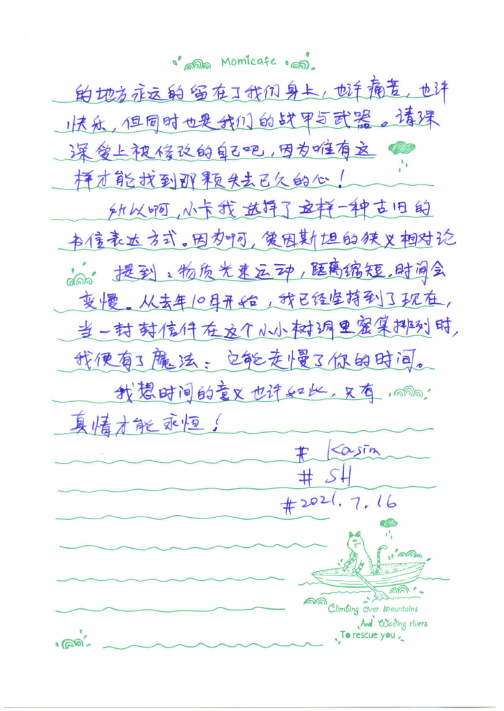 Momicafe
的地方永远的留在了我们身上，也许痛苦，也许
快乐，但同时也是我们的战甲与武器。请深
深爱上被修改的自己吧，因为唯有这
样才能找到那颗失去已久的心！
所以啊，小卡我选择了这样一种古旧的
书信表达方式。因为啊，爱因斯坦的狭义相对论
提到：物质光速运动，距离缩短，时间会
变慢。从去年10月开始，我已经坚持到了现在，
当一封封信件在这个小小树洞里密集排列时，
我便有了魔法：它能走慢了你的时间。
我想时间的意义也许如此，只有
真情才能永恒！
# Kasim
# SH
#2021.7.16
Climbing over mountains
And Wading rivers
To rescue you